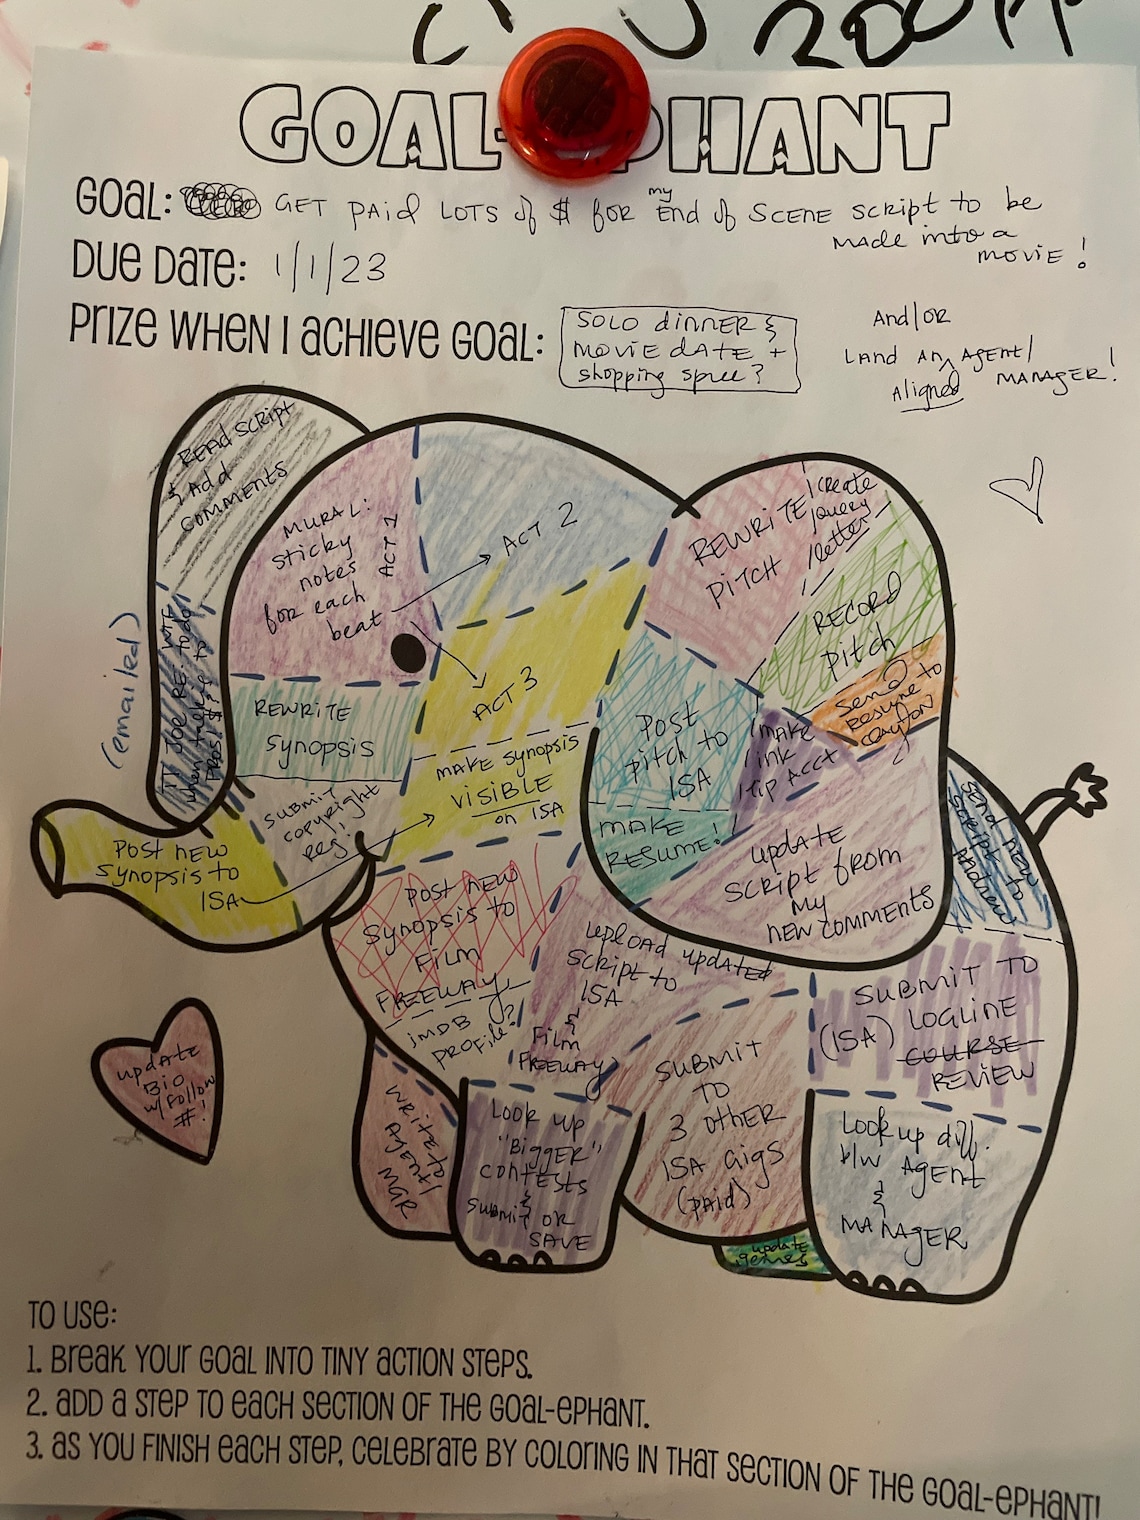 GOAL-EPHANT
GOAL: GET PAid LOTS of $ for my End of SCENE SCRIPT to be
MADE into a
MOVIE!
DUE DATE: 1/1/23
PRIZE WHEN I ACHIEVE GOAL:
SOLO dinner &
MOVIE dATE +
shopping spree?
And/OR
LAND AN Aligned AGENT/
MANAGER!
READ SCRIPT
& Add
COMMENTS
MURAL:
sticky
notes
for each
beat
ACT 1
ACT 2
ACT 3
REWRITE
PITCH
create
query
letter
RECORD
Pitch
Send
Resume to
(emailed)
TT JOE RE: WTF
to do
when talking to
REWRITE
Synopsis
MAKE Synopsis
VISIBLE
on ISA
Post
pitch to
ISA
MAKE
ink
tip Acct
MAKE
RESUME!
SUBMIT
copyright
reg!
Post new
Synopsis to
ISA
update
SCRIPT from
My
NEW COMMENTS
Send new
script to
Post new
Synopsis to
Film
FREEWAY
iMDB
PROFile?
upload updated
Script to
ISA
&
Film
FREEWAY
SUBMIT TO
(ISA) LOGLINE
COURSE
REVIEW
SUBMIT
TO
3 OTHER
ISA GIGS
(PAID)
update
Bio
w/ Follow
#!
WRITE
AGENT/
MGR
letter
Look up
"Bigger"
contests
&
Submit OR
SAVE
Look up diff.
b/w Agent
&
MANAGER
update
genres
TO USE:
1. BREAK YOUR GOAL INTO TINY ACTION STEPS.
2. ADD A STEP TO EACH SECTION OF THE GOAL-EPHANT.
3. AS YOU FINISH EACH STEP, CELEBRATE BY COLORING IN THAT SECTION OF THE GOAL-EPHANT!